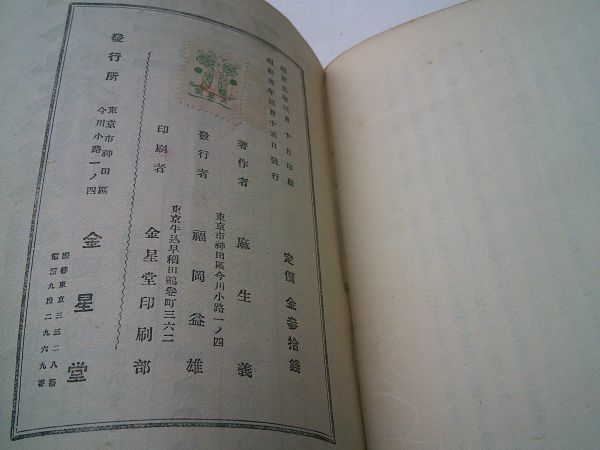 昭和五年三月十日印刷
昭和五年三月十五日發行
定價金參拾錢
著作者 麻生義
東京市神田區今川小路一ノ四
發行者 福岡益雄
東京牛込早稻田鶴卷町三六二
印刷者 金星堂印刷部
發行所
東京市神田區
今川小路一ノ四
金星堂
振替東京三三二八番
電話九段二九六九番